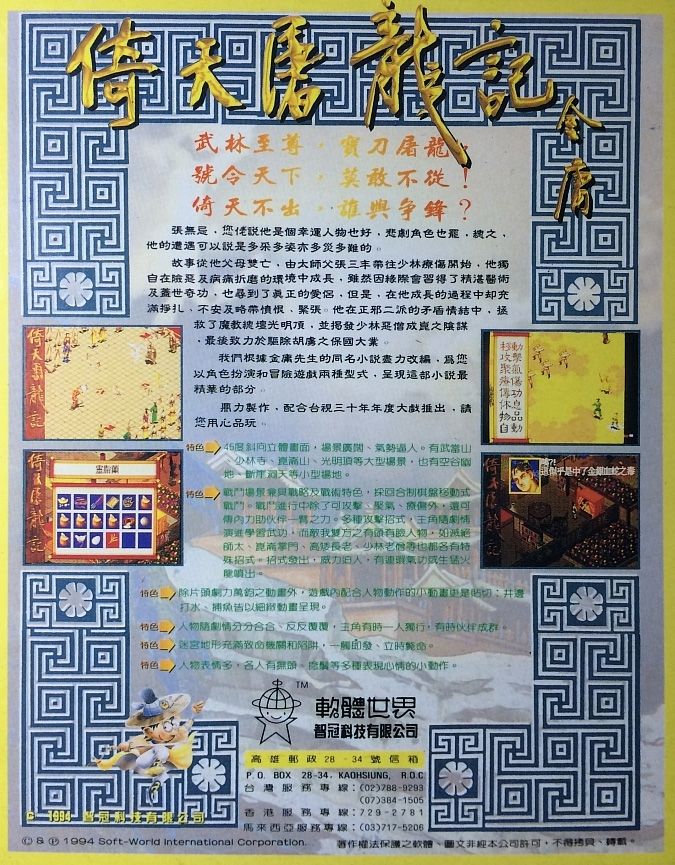 倚天屠龍記
金庸
武林至尊，寶刀屠龍，
號令天下，莫敢不從！
倚天不出，誰與爭鋒？
張無忌，您佬說他是個幸運人物也好，悲劇角色也罷，總之，
他的遭遇可以說是多采多姿亦多災多難的。
故事從他父母雙亡，由太師父張三丰帶往少林療傷開始，他獨
自在險惡及病痛折磨的環境中成長，雖然因緣際會習得了精湛醫術
及蓋世奇功，也尋到了真正的愛侶，但是，在他成長的過程中却充
滿掙扎、不安及略帶憤恨、緊張。他在正邪二派的矛盾情結中，拯
救了魔教總壇光明頂，並揭發少林惡僧成崑之陰謀
，最後致力於驅除胡虜之保國大業。
我們根據金庸先生的同名小說盡力改編，爲您
以角色扮演和冒險遊戲兩種型式，呈現這部小說最
精華的部分。
鼎力製作，配合台視三十年年度大戲推出，請
您用心品玩。
倚天屠龍記
動攻擊氣傷功息品動
倚天屠龍記
靈獸藥
這似乎是中了金銀血蛇之毒
倚天屠龍記
特色 45度斜向立體畫面，場景廣闊、氣勢逼人。有武當山
、少林寺、崑崙山、光明頂等大型場景，也有空谷幽
地、斷崖洞天等小型場地。
特色 戰鬥場景兼具戰略及戰術特色，採回合制棋盤移動式
戰鬥。戰鬥進行中除了可攻擊、聚氣、療傷外，還可
傳內力助伙伴一臂之力。多種攻擊招式，主角隨劇情
演進學習武功，而敵我雙方之有頭有臉人物，如滅絕
師太、崑崙掌門、高矮長老、少林老僧等也都各有特
殊招式。招式發出，威力迫人，有連環氣功或生猛火
龍噴出。
特色 除片頭劇力萬鈞之動畫外，遊戲內配合人物動作的小動畫更是貼切：井邊
打水、捕魚皆以細緻動畫呈現。
特色 人物隨劇情分分合合、反反覆覆，主角有時一人獨行，有時伙伴成群。
特色 迷宮地形充滿致命機關和陷阱，一觸即發、立時斃命。
特色 人物表情多，各人有搔頭、磨鬚等多種表現心情的小動作。
TM
軟體世界
智冠科技有限公司
高雄郵政28-34號信箱
P.O. BOX 28-34, KAOHSIUNG, R.O.C
台灣服務專線：(02)788-9293
(07)384-1505
香港服務專線：729-2781
馬來西亞服務專線：(03)717-5206
© 1994 智冠科技有限公司
© & ℗ 1994 Soft-World International Corporation.
著作權法保護之軟體、圖文非經本公司許可，不得拷貝、轉載。